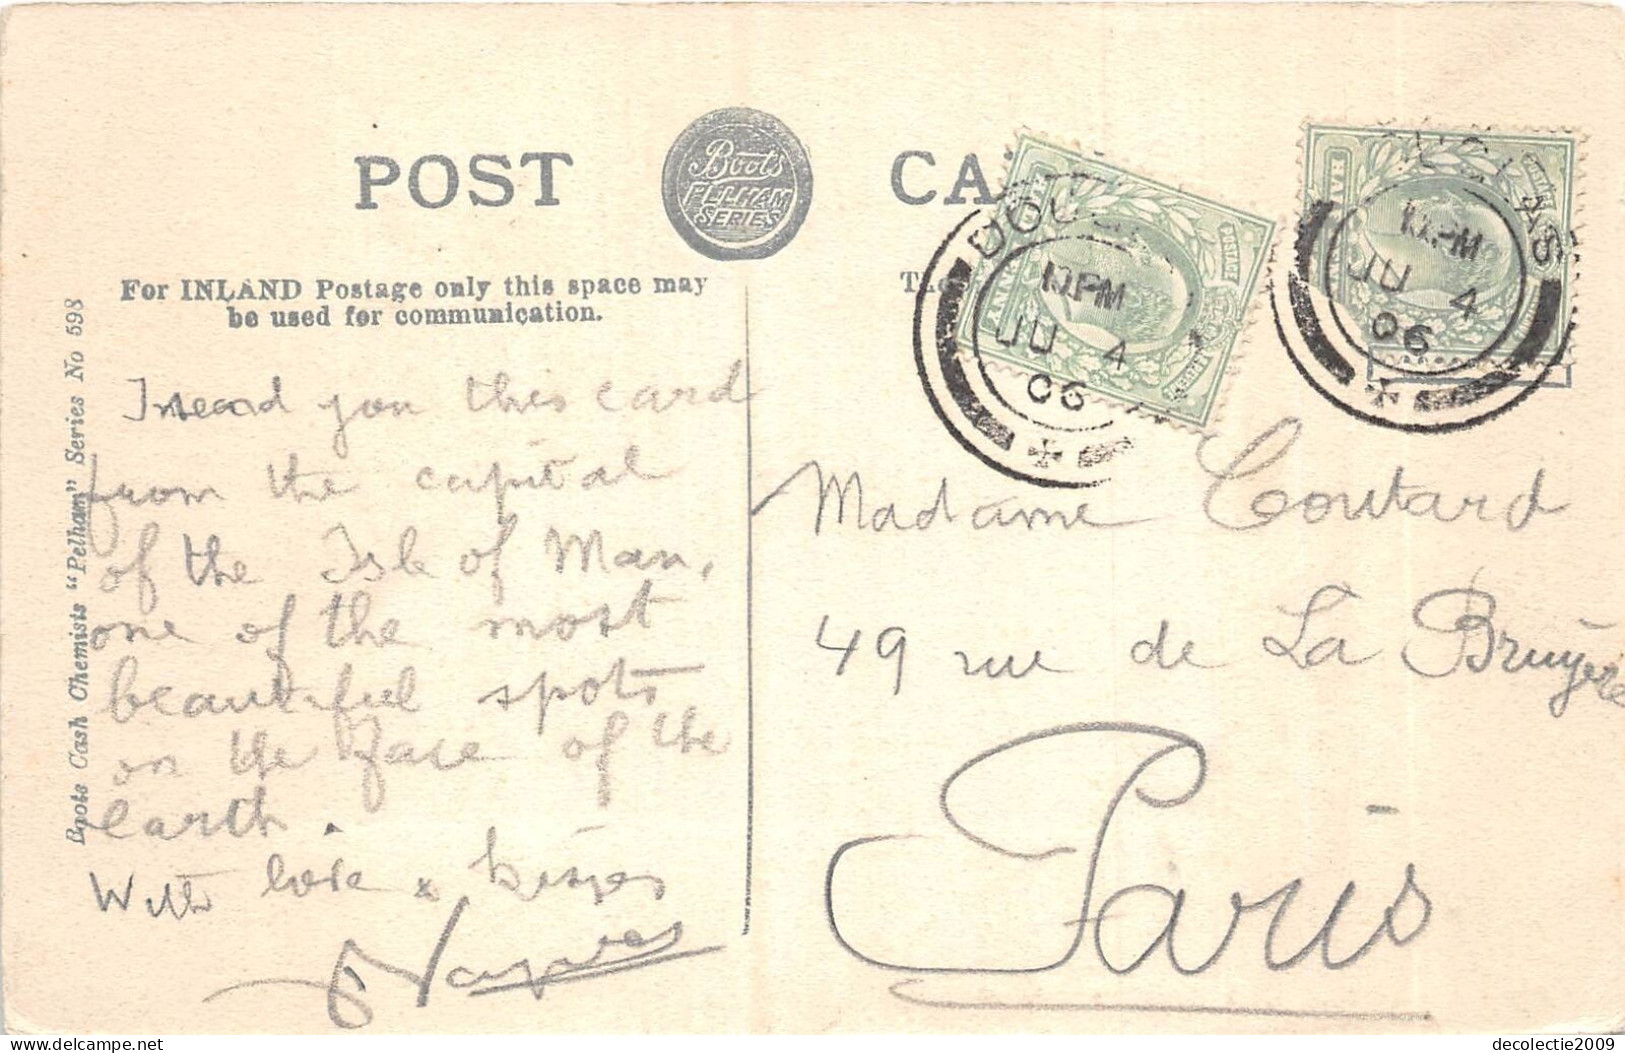 POST
Boots
PELHAM
SERIES
CA
For INLAND Postage only this space may
be used for communication.
The
DOU
12.PM
JU 4
06
LAS
12.PM
JU 4
06
Boots Cash Chemists "Pelham" Series No 598
I send you this card
from the capital
of the Isle of Man,
one of the most
beautiful spots
on the face of the
earth.
With love & kisses
Madame Coutard
49 rue de La Bruyère
Paris
delcampe.net
decolectie2009